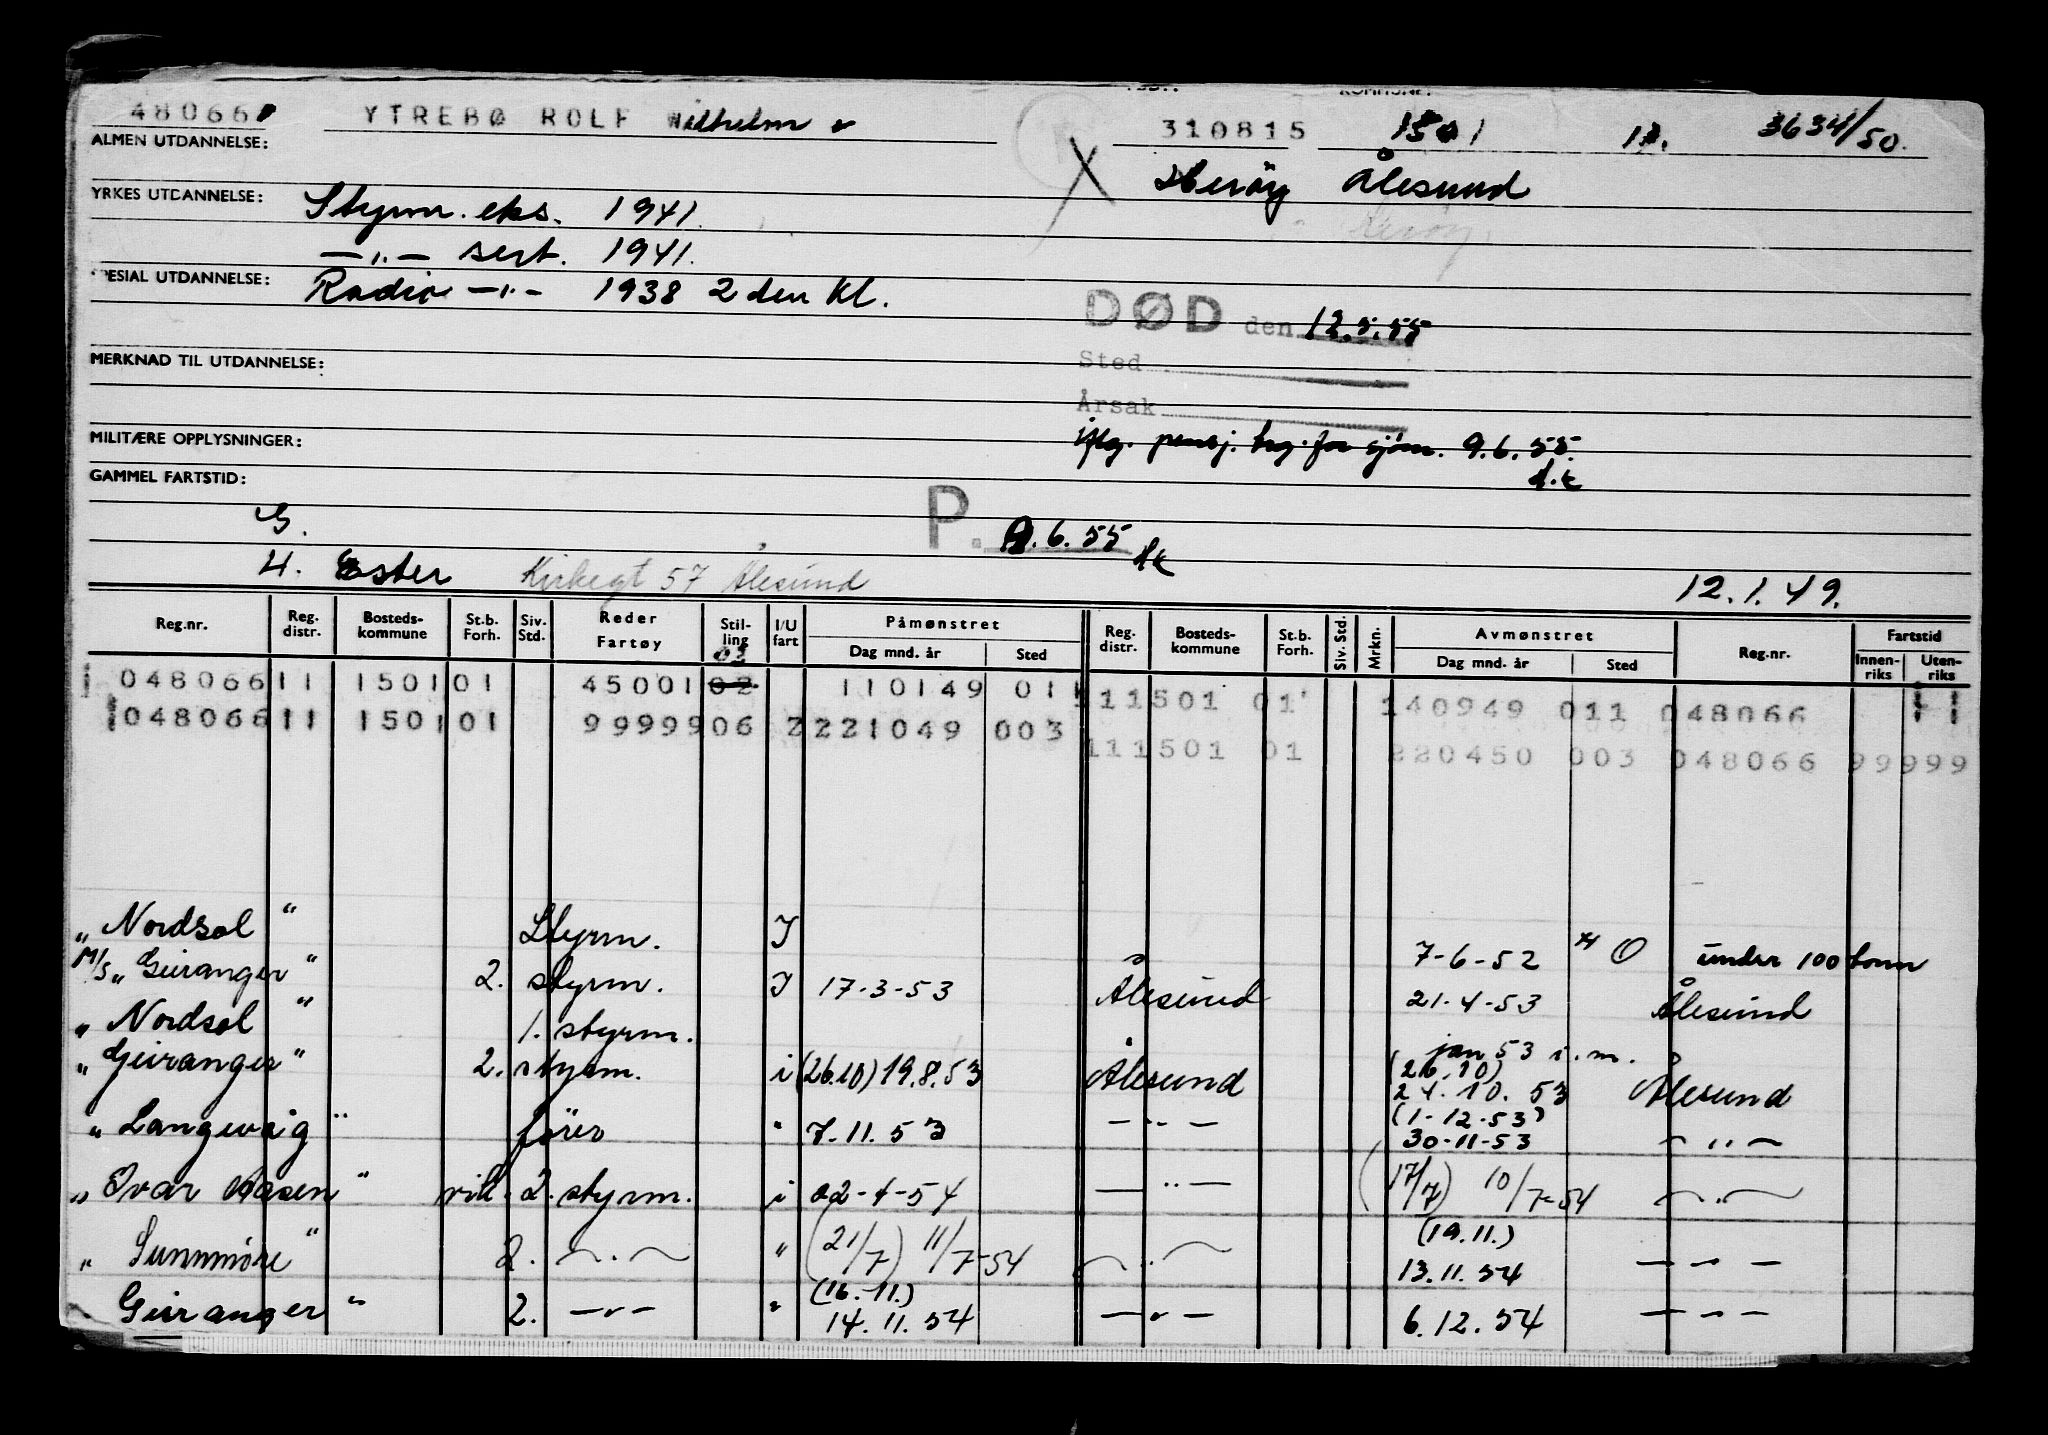 48066 YTREBØ ROLF Wilhelm 310815 1501 11. 3634/50
ALMEN UTDANNELSE: Herøy Ålesund
YRKES UTDANNELSE: Styrm. eks. 1941
Herøy
—"— sert. 1941.
SPESIAL UTDANNELSE: Radio —"— 1938 2 den kl.
DØD den 12.5.55
MERKNAD TIL UTDANNELSE: Sted
Årsak
MILITÆRE OPPLYSNINGER: iflg. pensj. trg. for sjøm. 9.6.55.
GAMMEL FARTSTID:
G. P. 9.6.55
H. Ester Kirkegt 57 Ålesund 12.1.49.
Reg.nr. Reg. distr. Bosteds-kommune St.b. Forh. Siv. Std. Reder Fartøy Stil-ling I/U fart Påmønstret Dag mnd. år Sted Reg. distr. Bosteds-kommune St.b. Forh. Siv. Std. Mrkn. Avmønstret Dag mnd. år Sted Reg.nr. Fartstid Innen-riks Uten-riks
048066 11 1501 01 45001 02 110149 011 11 1501 01 140949 011 048066
048066 11 1501 01 99999 06 2 221049 003
11 1501 01 220450 003 048066 99999
"Nordsol" Styrm. I 7-6-52 O under 100 tonn
M/S "Geiranger" 2. styrm. I 17-3-53 Ålesund 21-4-53 Ålesund
"Nordsol" 1. styrm. jan 53 i.m.
"Geiranger" 2. styrm. i (26.10) 19.8.53 Ålesund (26.10) 24.10.53 Ålesund
"Langevåg" fører " 7.11.53 —"— (1-12-53) 30-11-53 —"—
"Ivar Aasen" vik. 2. styrm. i 02-4-54 —"— (17/7) 10/7-54 —"—
"Sunnmøre" 2. —"— " (21/7) 11/7-54 —"— (19.11.) 13.11.54 —"—
Geiranger" 2. —"— " (16.-11.) 14.11.54 —"— 6.12.54 —"—